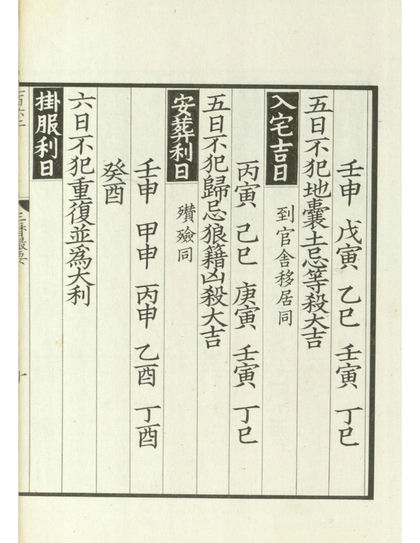 壬申 戊寅 乙巳 壬寅 丁巳
五日不犯地囊土忌等殺大吉
入宅吉日 到官舍移居同
丙寅 己巳 庚寅 壬寅 丁巳
五日不犯歸忌狼籍凶殺大吉
安葬利日 殯殮同
壬申 甲申 丙申 乙酉 丁酉
癸酉
六日不犯重復並為大利
掛服利日
十